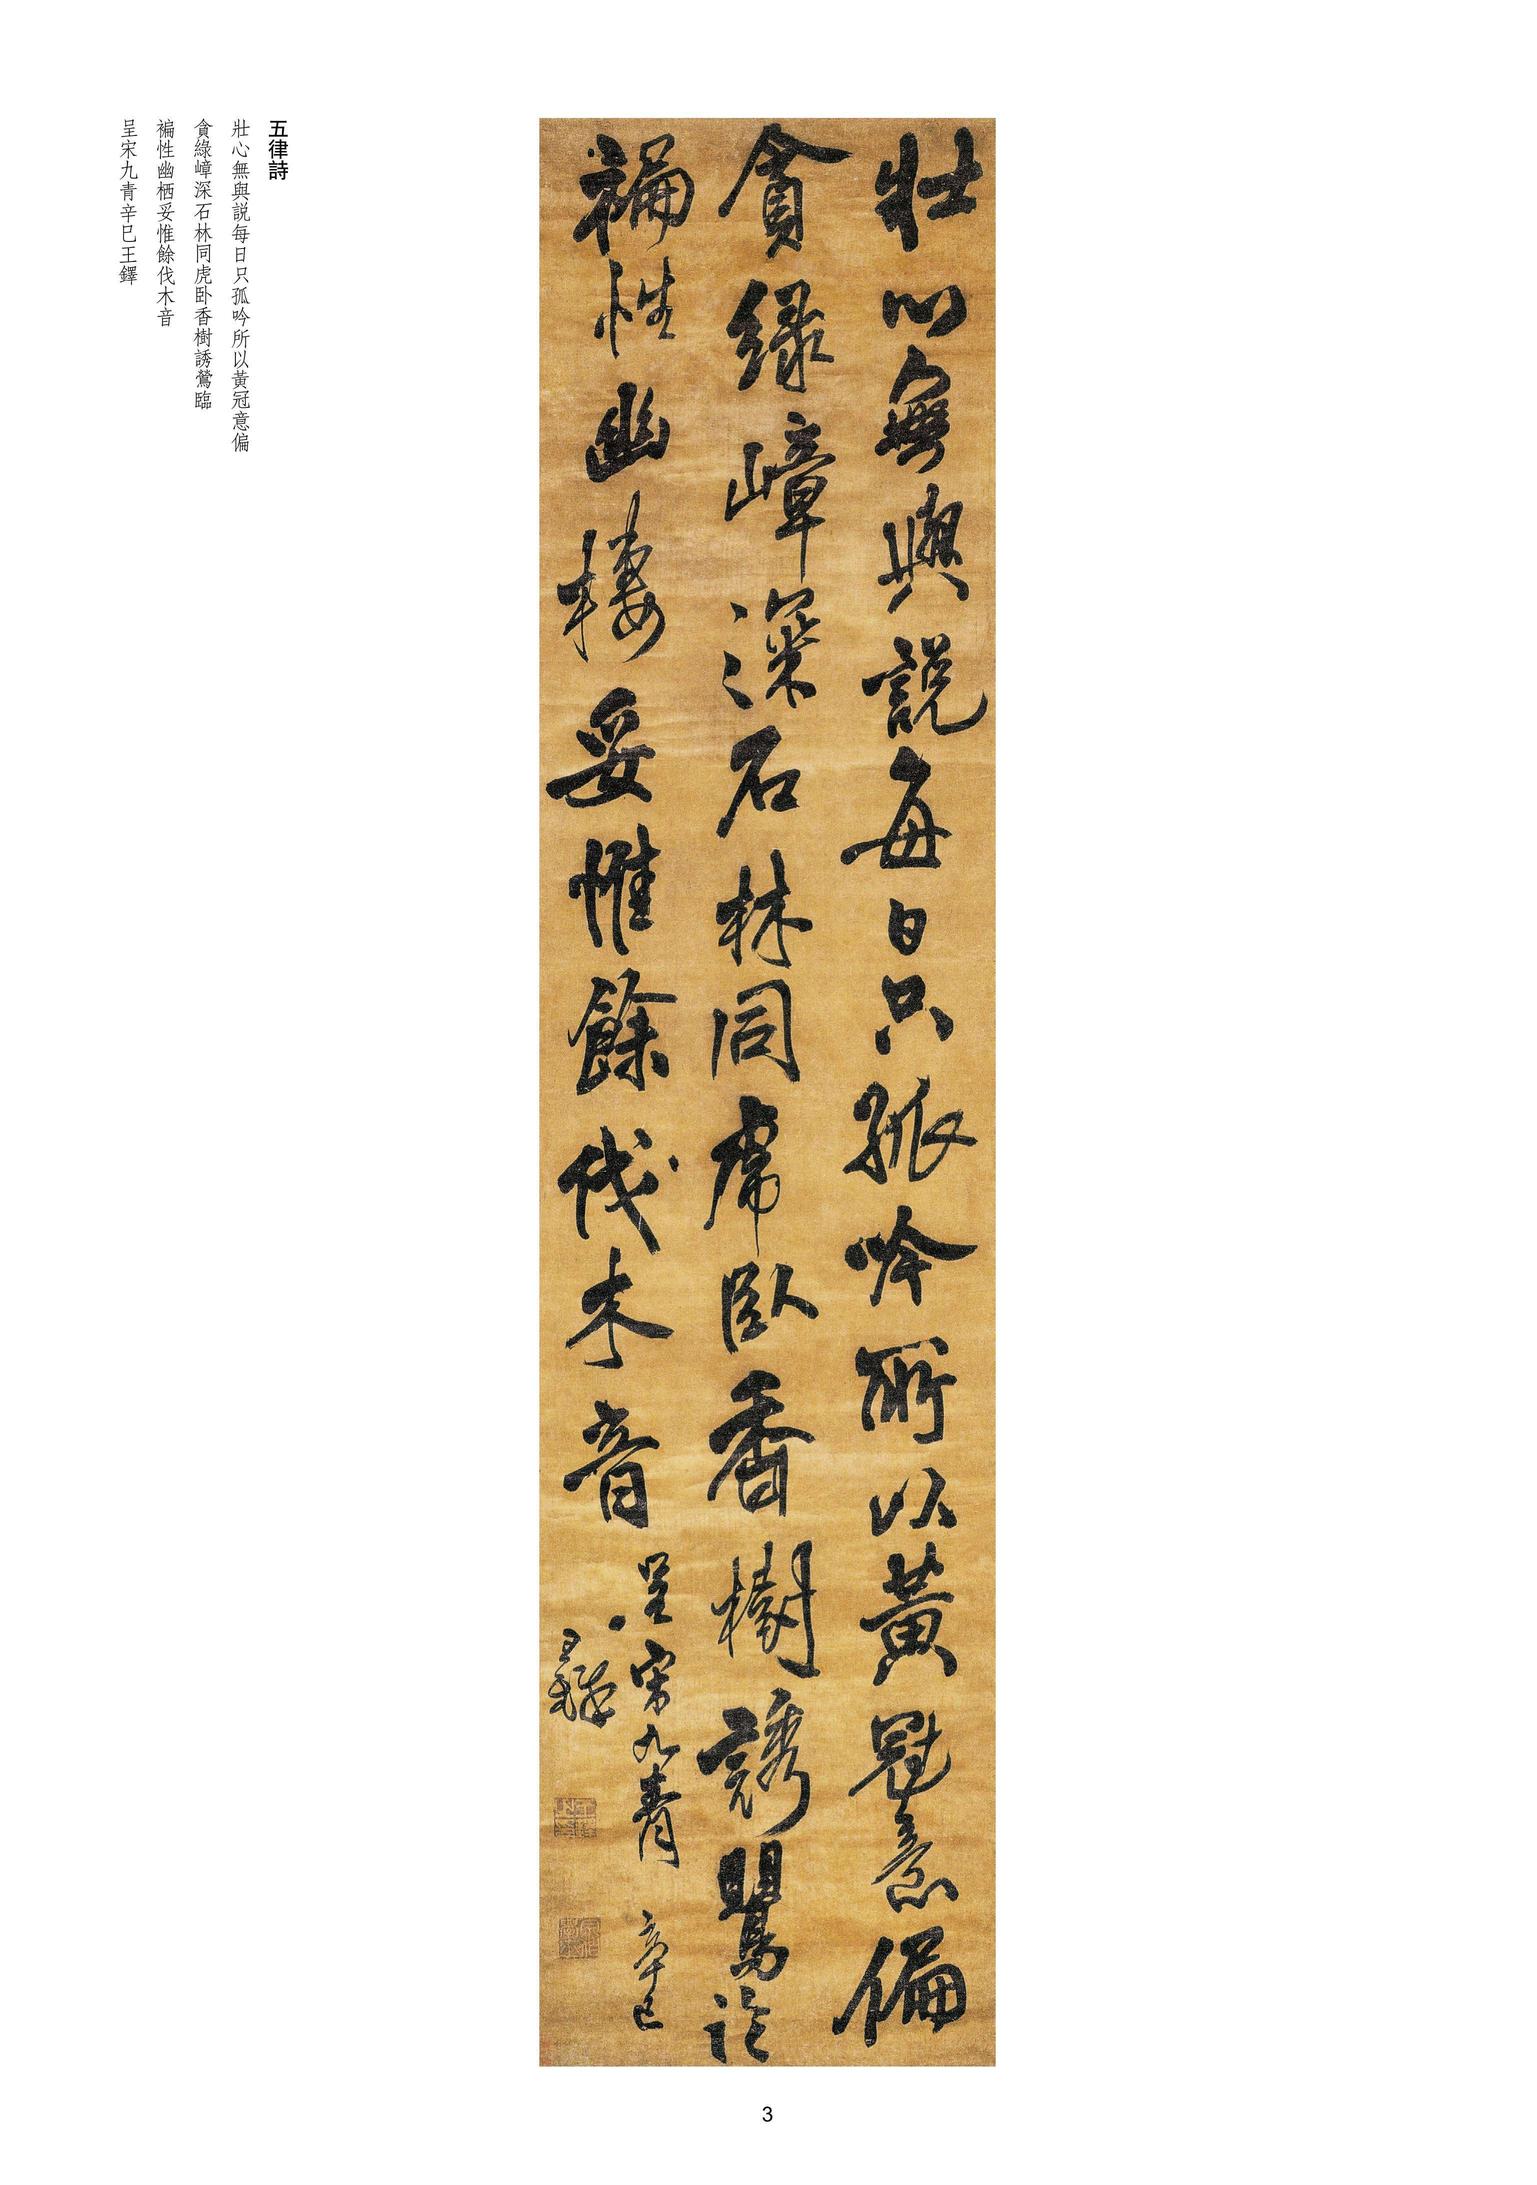 壯心無與說每日只孤吟所以黃冠意偏
貪綠嶂深石林同虎臥香樹誘鶯臨
褊性幽棲妥惟餘伐木音
呈宋九青辛巳
王鐸
五律詩
壯心無與説每日只孤吟所以黃冠意偏
貪綠嶂深石林同虎卧香樹誘鶯臨
褊性幽栖妥惟餘伐木音
呈宋九青辛巳王鐸
3